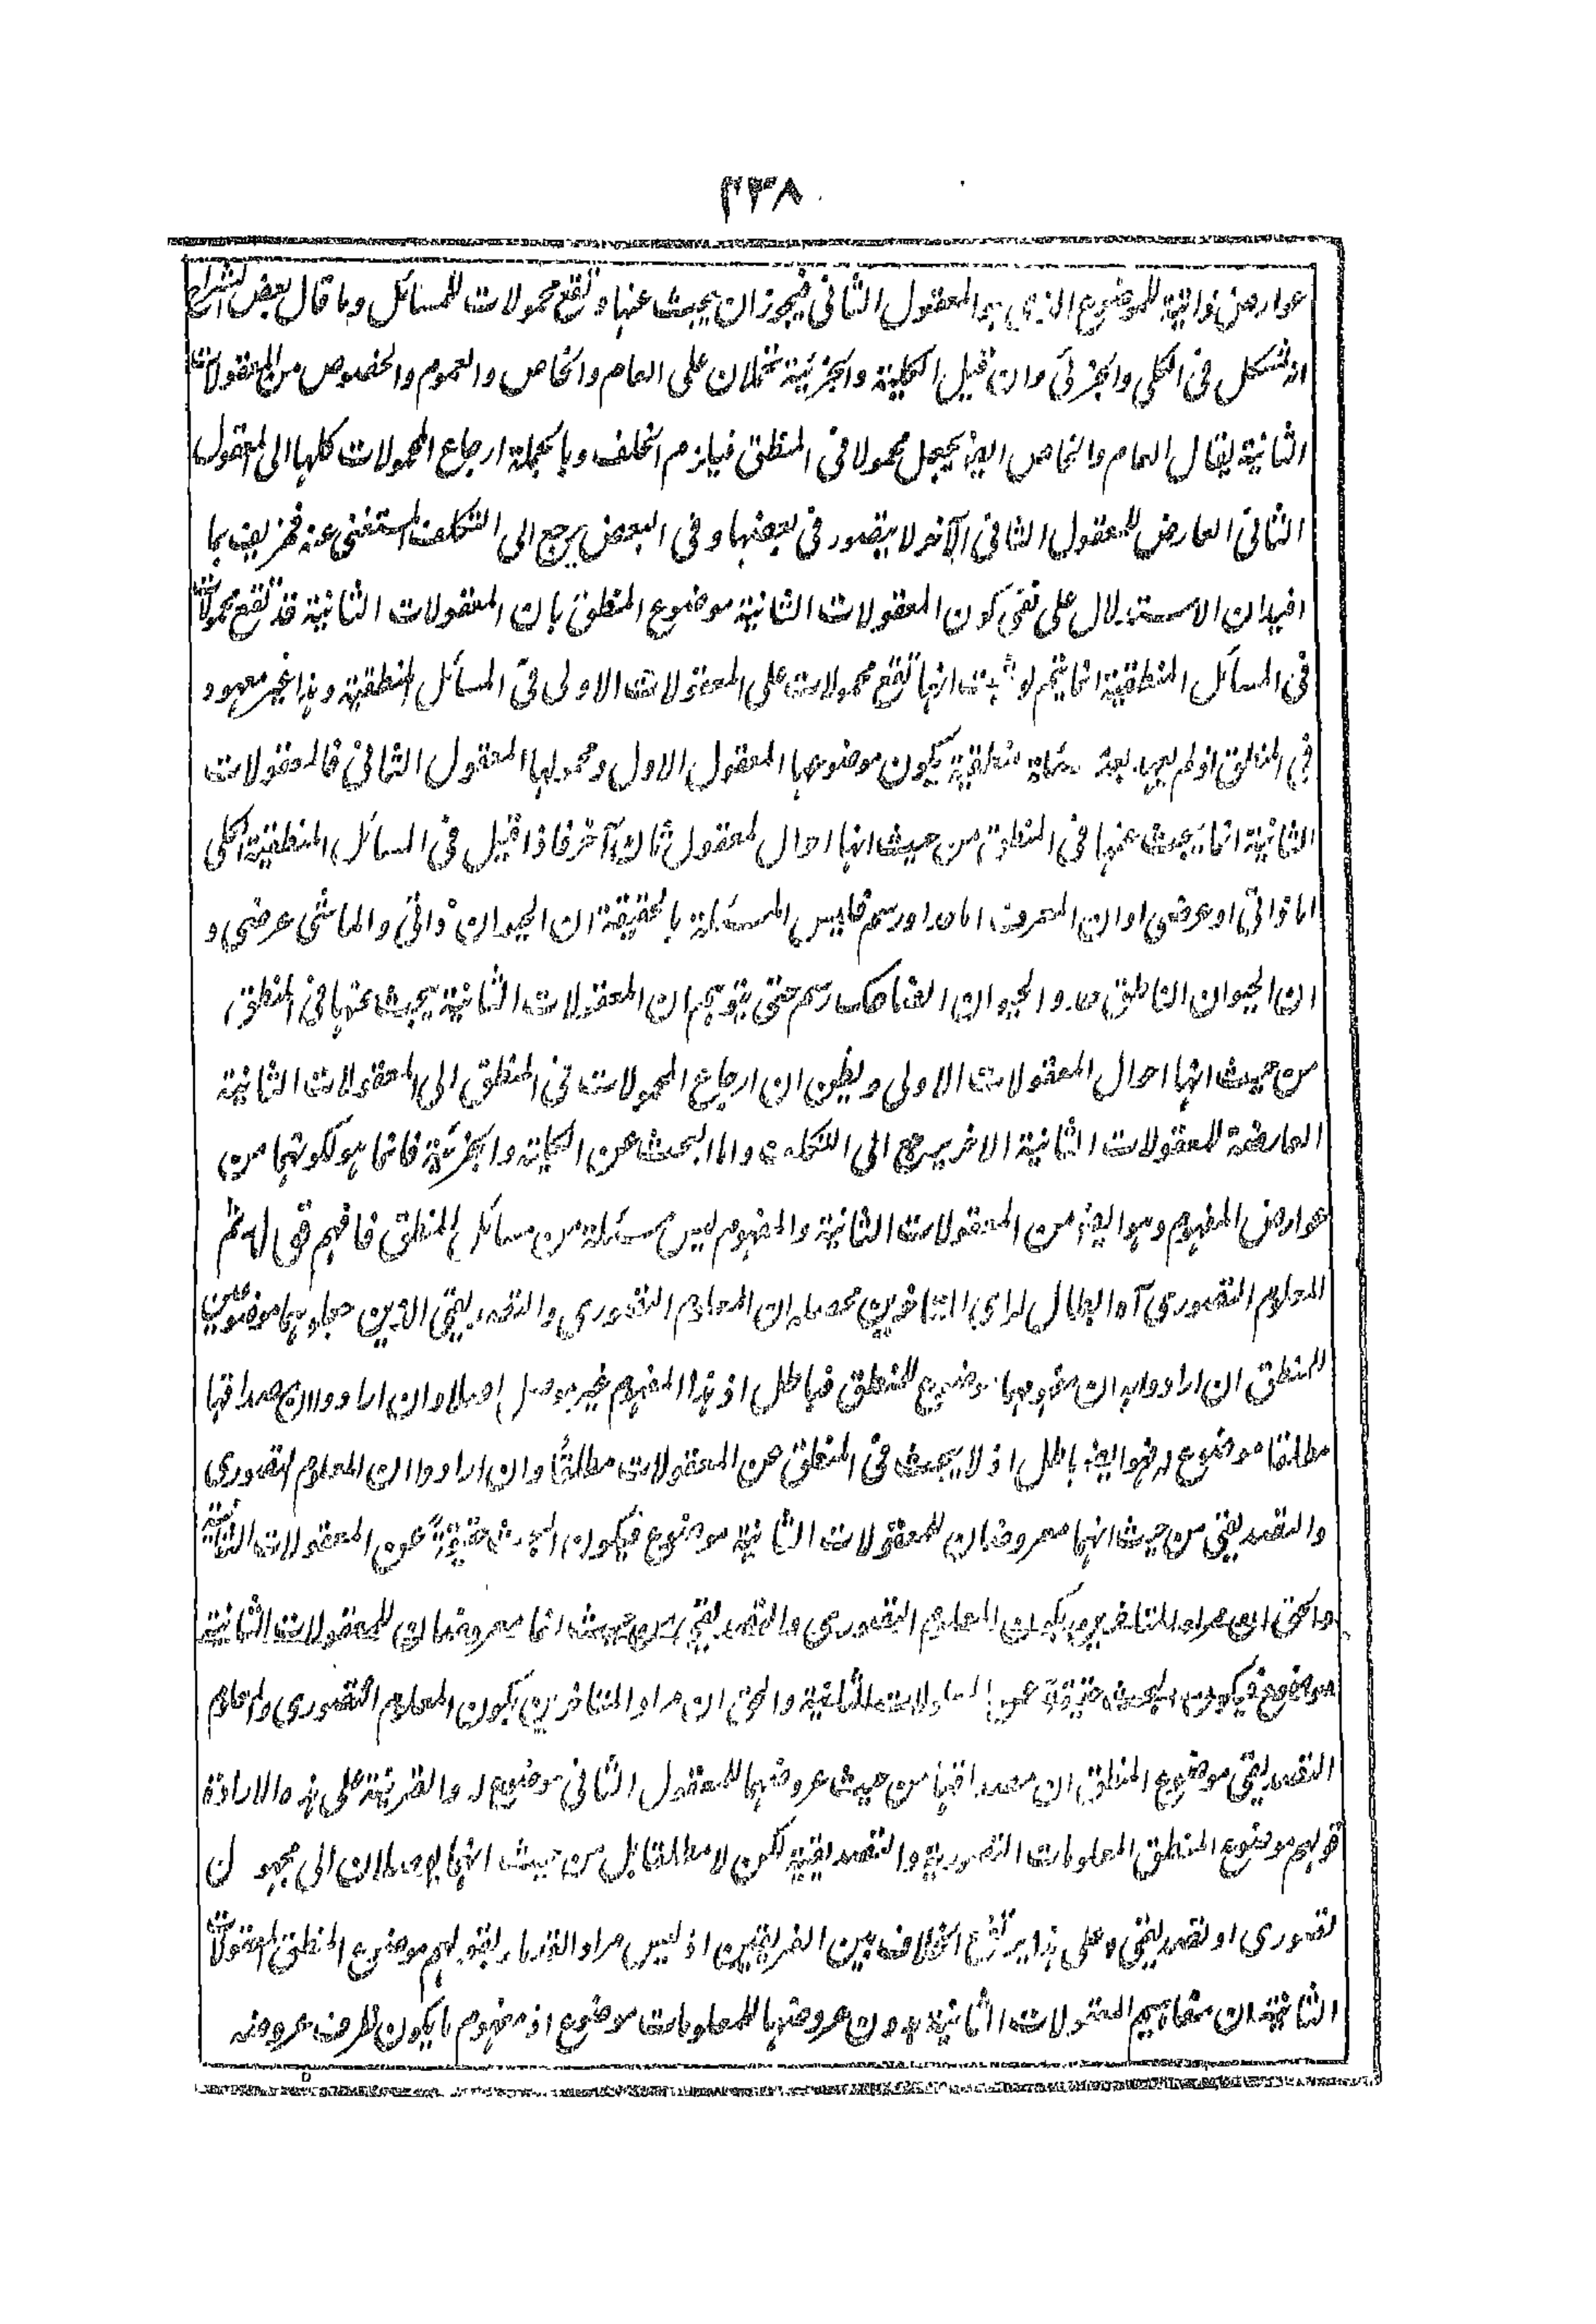 ٢٣٨
عوارض ذاتية للموضوع الذي هو المعقول الثاني فيجوز ان يبحث عنها وتقع محمولات للمسائل وما قال بعض الشراح
انه يشكل في الكلي والجزئي وان قيل الكلية والجزئية تحملان على العام والخاص والعموم والخصوص من المعقولات
الثانية يقال العام والخاص ايضا يجعل محمولا في المنطق فيلزم الخلف وبالجملة ارجاع المحمولات كلها الى المعقول
الثاني العارض للمعقول الثاني الآخر لا يتصور في بعضها وفي البعض يرجع الى التكلف المستغنى عنه فمزيف بما
افيد ان الاستدلال على نفي كون المعقولات الثانية موضوع المنطق بان المعقولات الثانية قد تقع محمولات
في المسائل المنطقية انما يتم لو ثبت انها تقع محمولات على المعقولات الاولى في المسائل المنطقية وهذا غير معهود
في المنطق اذ لم يعهد بعد مسئلة منطقية يكون موضوعها المعقول الاول ومحمولها المعقول الثاني فالمعقولات
الثانية انما يبحث عنها في المنطق من حيث انها احوال لمعقول ثان آخر فاذا قيل في المسائل المنطقية الكلي
اما ذاتي او عرضي او ان المعرف اما حد او رسم فليس المسئلة بالحقيقة ان الحيوان ذاتي والماشي عرضي و
ان الحيوان الناطق حد والحيوان الضاحك رسم حتى يتوهم ان المعقولات الثانية يبحث عنها في المنطق
من حيث انها احوال المعقولات الاولى ويظن ان ارجاع المحمولات في المنطق الى المعقولات الثانية
العارضة للمعقولات الثانية الاخر يرجع الى التكلف واما البحث عن الكلية والجزئية فانما هو لكونهما من
عوارض المفهوم وهو ايضا من المعقولات الثانية والمفهوم ليس مسئلة من مسائل المنطق فافهم قوله ثم
المعلوم التصوري آه ابطال لراي المتاخرين محصله ان المعلوم التصوري والتصديقي الذين جعلوهما موضوعين
للمنطق ان ارادوا به ان مفهومهما موضوع للمنطق فباطل اذ هذا المفهوم غير موصل اصلا وان ارادوا ان مصداقها
مطلقا موضوع له فهو ايضا باطل اذ لا يبحث في المنطق عن المعقولات مطلقا وان ارادوا ان المعلوم التصوري
والتصديقي من حيث انهما معروضان للمعقولات الثانية موضوع فيكون البحث حقيقة عن المعقولات الثانية
والحق ان مراد المتاخرين بكون المعلوم التصوري والتصديقي من حيث انما معروضان للمعقولات الثانية
موضوع فيكون البحث حقيقة عن المعقولات الثانية والحق ان مراد المتاخرين بكون المعلوم التصوري والمعلوم
التصديقي موضوع المنطق ان مصداقها من حيث عروضها للمعقول الثاني موضوع له والقرينة على هذه الارادة
قولهم موضوع المنطق المعلومات التصورية والتصديقية لكن لا مطلقا بل من حيث انهما يوصلان الى مجهول
تصوري او تصديقي وعلى هذا يرتفع الخلاف بين الفريقين اذ ليس مراد القدماء بقولهم موضوع المنطق المعقولات
الثانية ان مفاهيم المعقولات الثانية بدون عروضها للمعلومات موضوع اذ مفهوم ما يكون ظرف عروضه